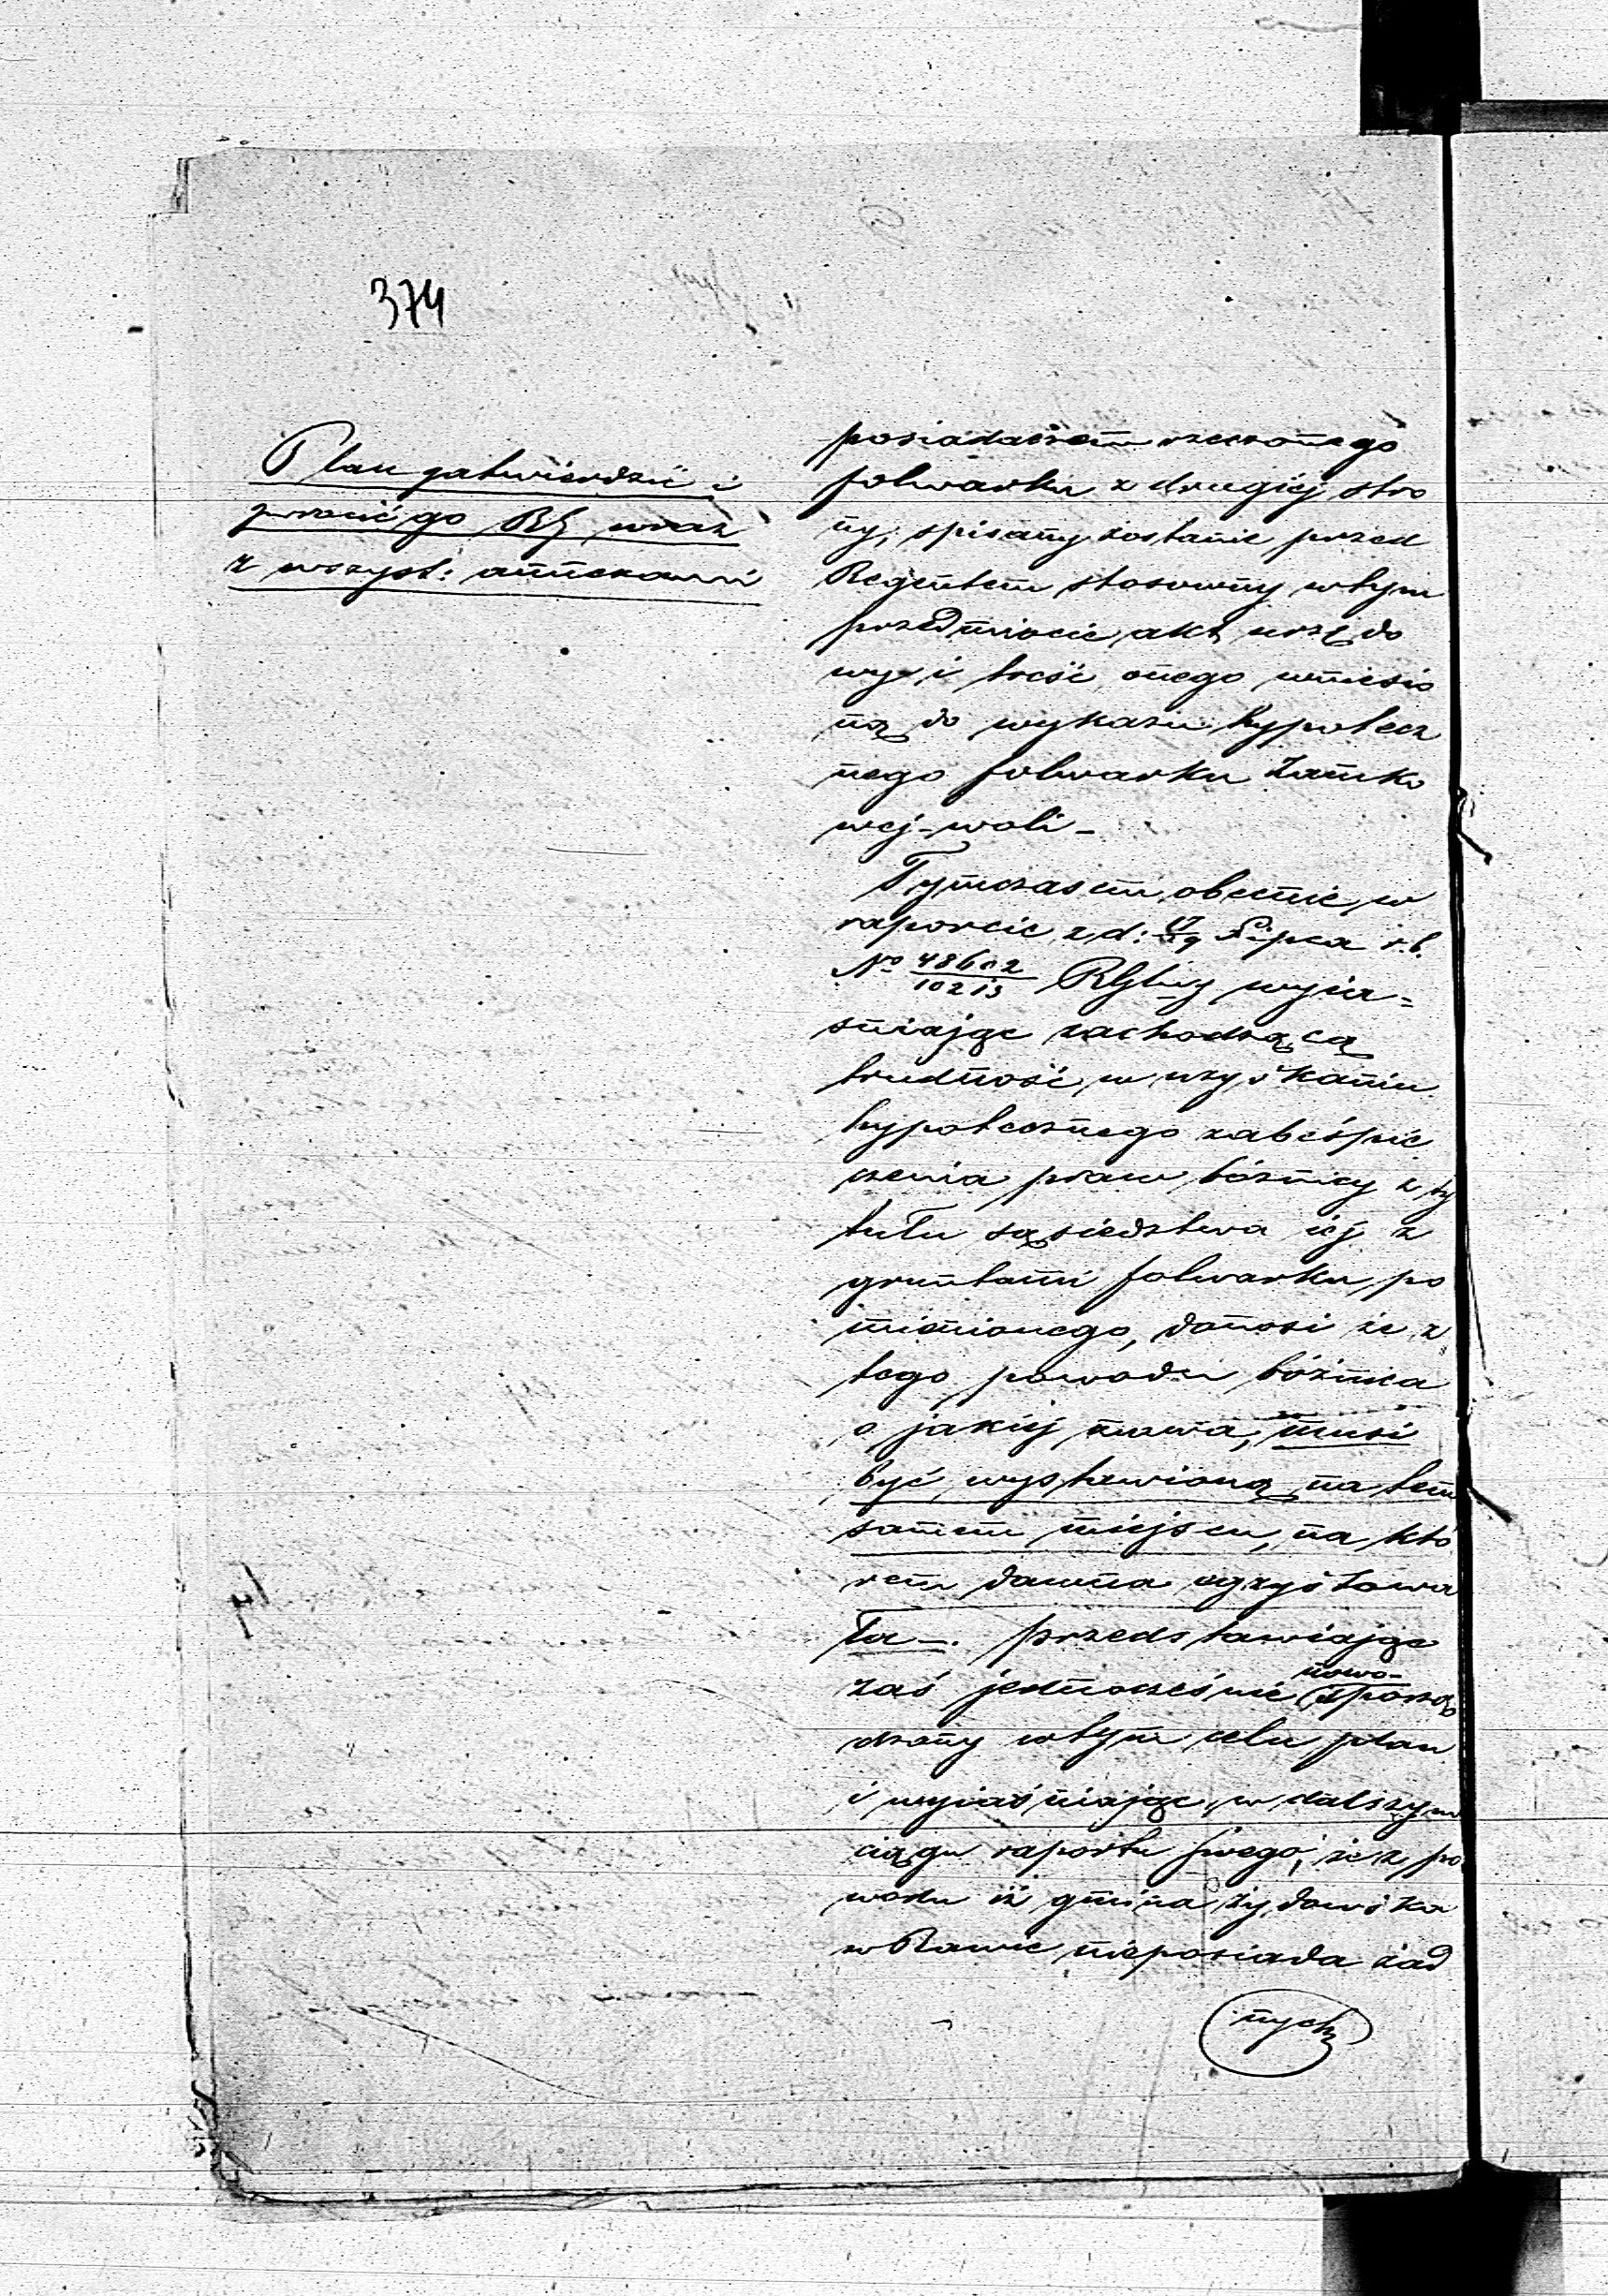 374
Plan zatwierdzić i
zwrócić go RG wraz
z wszyst: annexami
posiadaczem rzeczonego
folwarku z drugiej stro
ny, spisany zostanie przed
Regentem stosowny w tym
przedmiocie akt urzędo
wy i treść onego wniesio
ną do wykazu hypotecz
nego folwarku Zamko
wej-woli -
Tymczasem obecnie w
raporcie z d: 17/29 Lipca r.b.
No 48602/10213 RGlny wyia=
śniając zachodzącą
trudność w uzyskaniu
hypotecznego zabespie
czenia praw bóżnicy z ty
tułu sąsiedztwa iej z
gruntami folwarku po
mienionego, donosi że z
tego powodu bóżnica
o jakiej mowa, musi
być wystawioną na tem
samem miejscu, na któ
rem dawna egzystowa
ła -. przedstawiając
zaś jednocześnie nowo-
sporzą
dzany w tym celu plan
i wyiaśniając w dalszym
ciągu raportu swego, że z po
wodu iż gmina żydowska
w Rawie nieposiada żad
nych